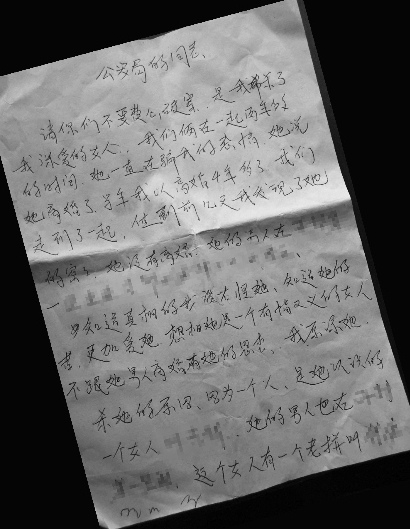 公安局的同志、
请你们不要费心破案、是我杀了
我深爱的女人、我们俩在一起两年多
的时间 她一直在骗我的感情 她说
她离婚了 当年我以离婚4年多了 我们
走到了一起、但到前几天我发现了她
的密 她没有离婚 她的男人在
一
我知道真相的我没有怪她、知道她的
苦、更加爱她 想想她是一个有情义的女人
不跟她男人离婚 我杀她
杀她的原因、因为一个人、是她认识的
一个女人 她的男人也在
这个女人有一个老拼叫